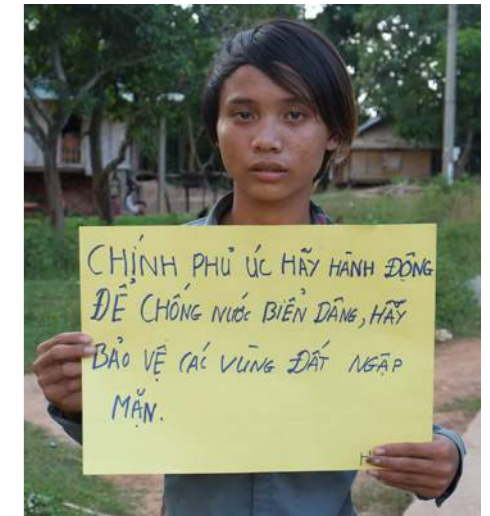 CHÍNH PHỦ ÚC HÃY HÀNH ĐỘNG
ĐỂ CHỐNG NƯỚC BIỂN DÂNG, HÃY
BẢO VỆ CÁC VÙNG ĐẤT NGẬP
MẶN.